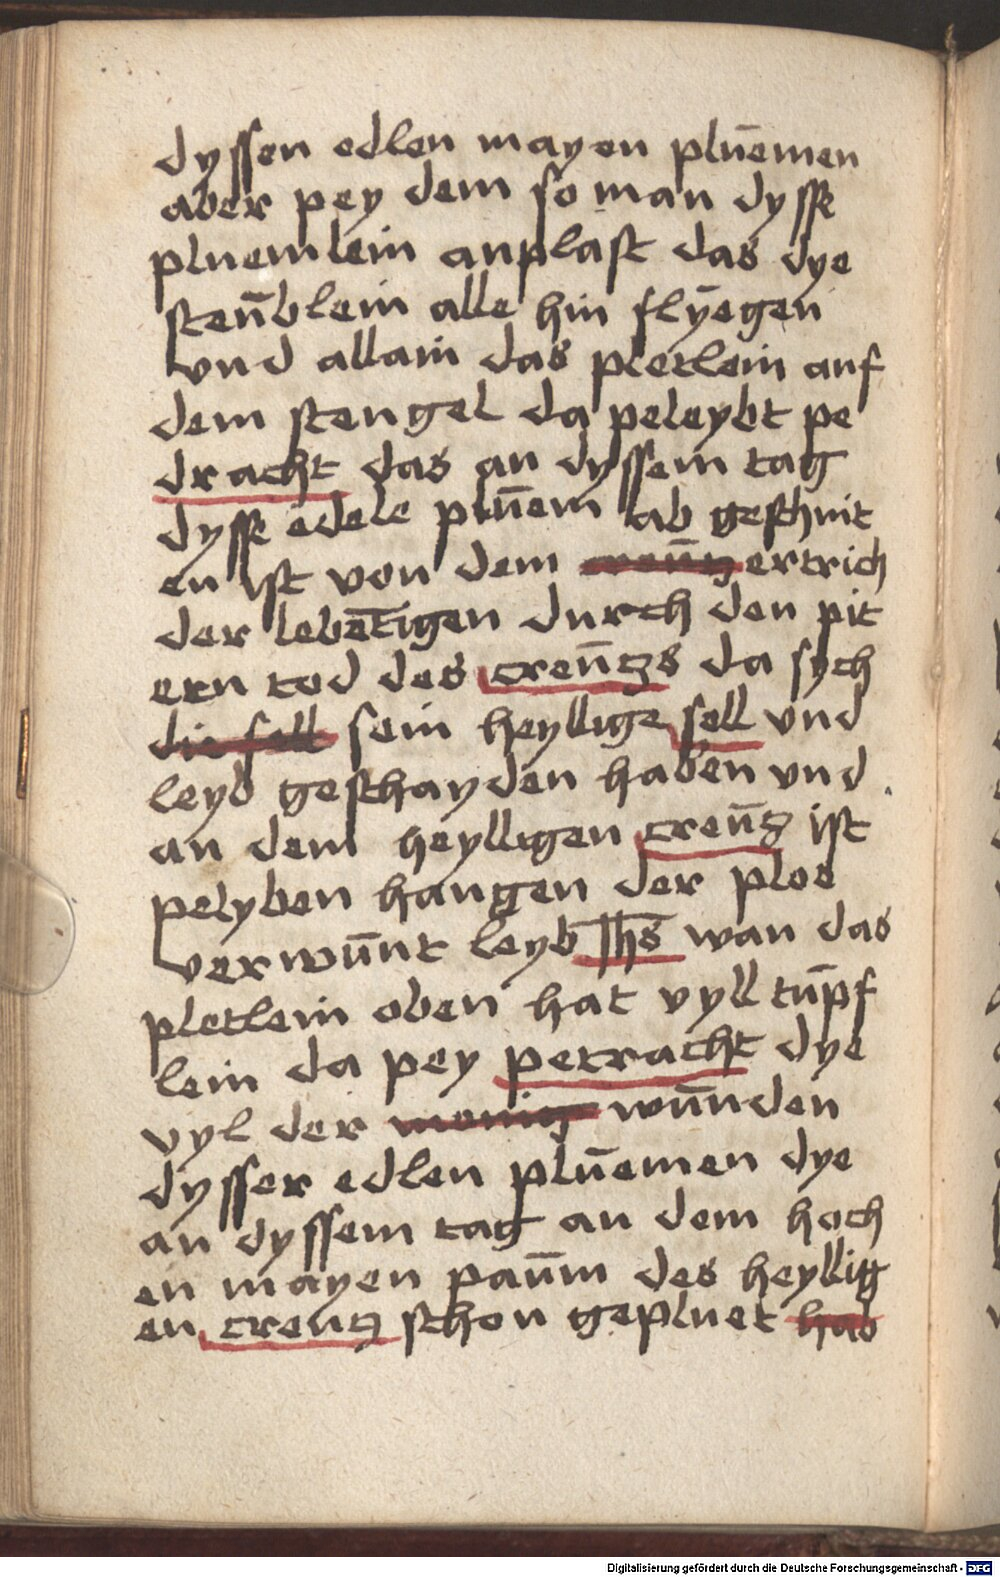 dyssen edlen mayen plūemen
aber pey dem so man dysse
pluemlein anplast das dye
steūblein alle hin flyēgen
vnd allain das pletlein auf
dem stengel da peleybt pe
dracht das an dyssem tag
dysse edele plūem ab geschnit
en ist von dem creūtz ertrich
der lebētigen durch den pit
ern tod des creūtzs da sych
die sell sein heyllige sell vnd
leyb geschayden haben vnd
an dem heylligen creūtz ist
pelyben hangen der plos
verwūnt leyb Jhs wan das
pletlein oben hat vyll tūpf
lein da pey petracht dye
vyl der menig wūnden
dysser edlen plūemen dye
an dyssem tag an dem hoch
en mayen paūm des heyllig
en creutz schon gepluet hab
Digitalisierung gefördert durch die Deutsche Forschungsgemeinschaft - DFG